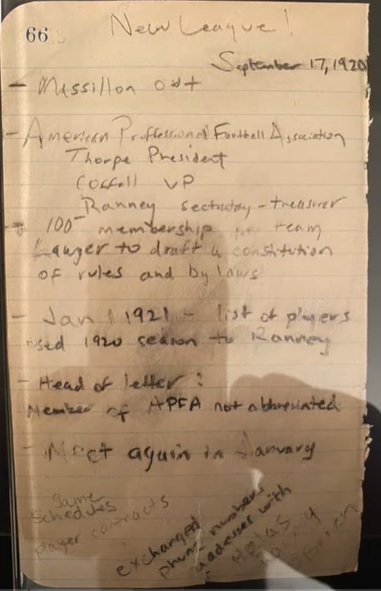 66
New League!
September 17, 1920
- Massillon out
- American Proffessional Football Association
Thorpe President
Coffall VP
Ranney sectutary-treasurer
- 100- membership per team
Lawyer to draft a constitution
of rules and by laws
- Jan 1 1921 - list of players
used 1920 season to Ranney
- Head of letter:
Member of APFA not abbreviated
- Meet again in January
Game
Schedules
player contracts
exchanged
phone numbers
addesses with
Halas